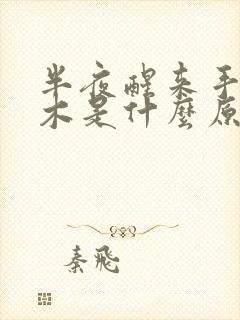 半夜醒来手
木是什麼原
秦飛